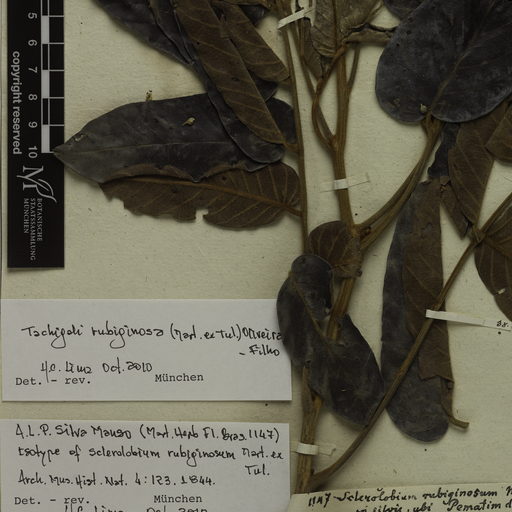 5
6
7
8
9
10
copyright reserved
BOTANISCHE
STAATSSAMMLUNG
MÜNCHEN
Tachigali rubiginosa (Mart. ex Tul.) Oliveira
- Filho
H.C. Lima Oct. 2010
Det. - rev. München
A.L.P. Silva Manso (Mart. Herb. Fl. Bras. 1147)
Isotype of Sclerolobium rubiginosum Mart. ex
Tul.
Arch. Mus. Hist. Nat. 4: 123. 1844.
Det. - rev. München
H.C. Lima Oct. 2010
1147 Sclerolobium rubiginosum
silvis, ubi